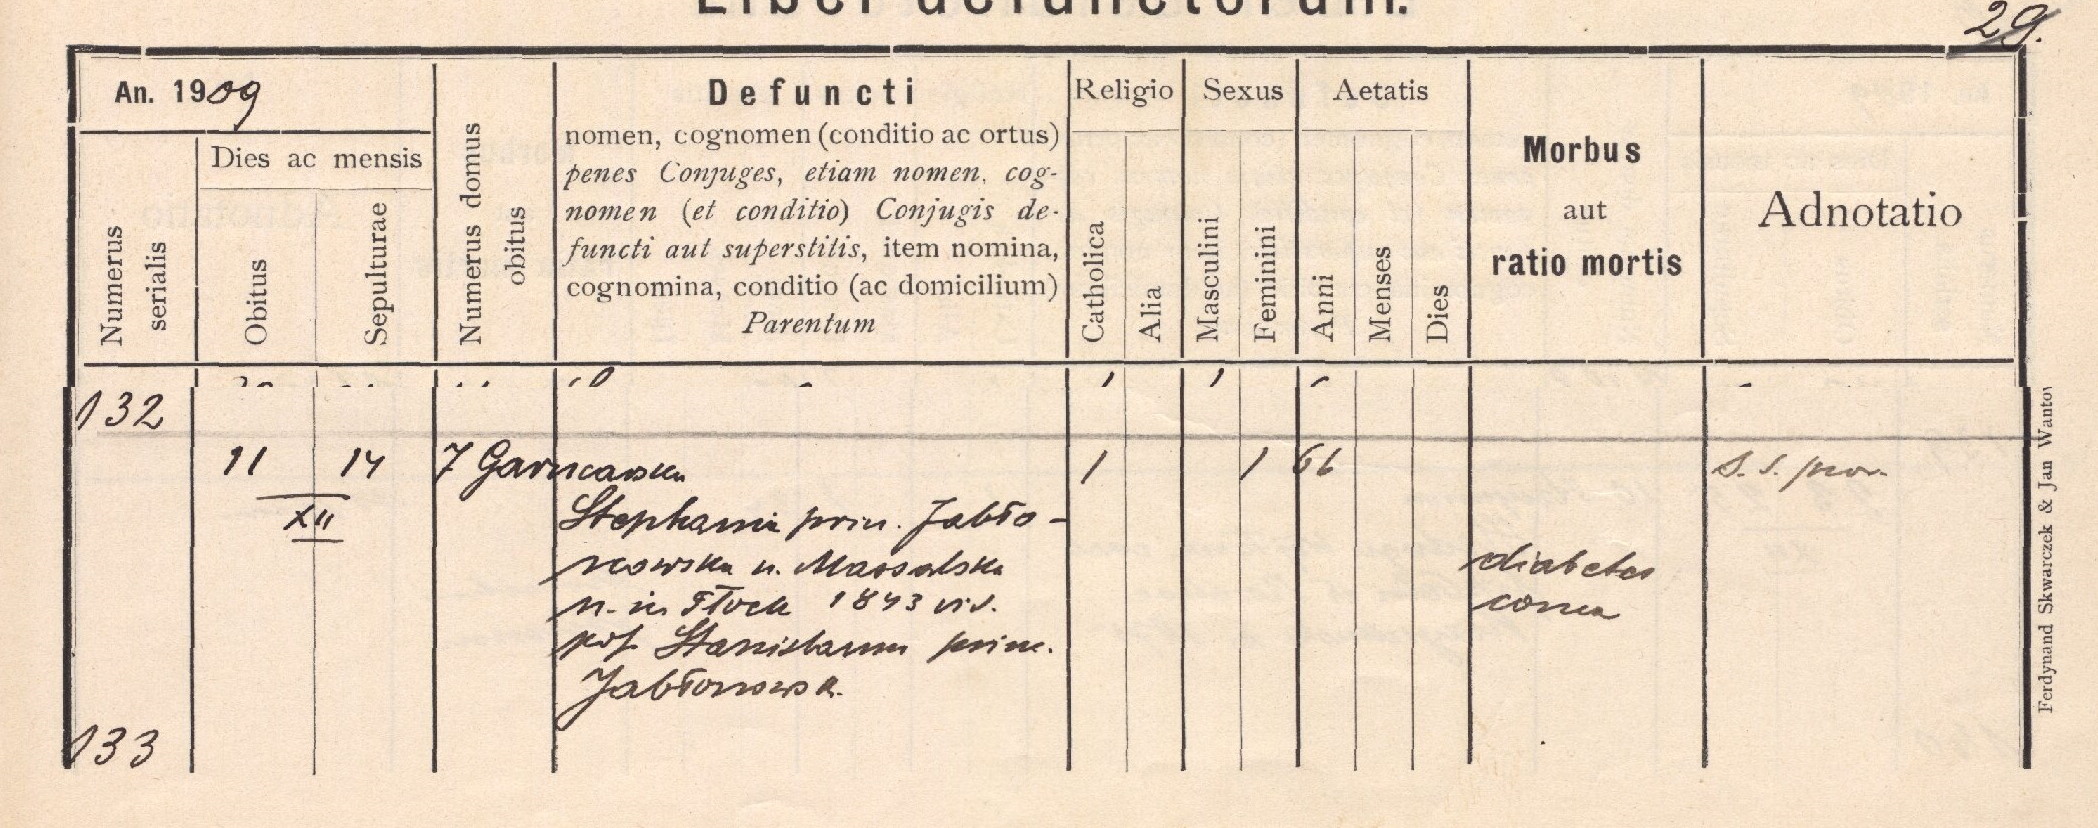 Liber defunctorum.
29.
An. 1909
Dies ac mensis
Numerus serialis
Obitus
Sepulturae
Numerus domus obitus
Defuncti
nomen, cognomen (conditio ac ortus)
penes Conjuges, etiam nomen, cog-
nomen (et conditio) Conjugis de-
functi aut superstitis, item nomina,
cognomina, conditio (ac domicilium)
Parentum
Religio
Catholica
Alia
Sexus
Masculini
Feminini
Aetatis
Anni
Menses
Dies
Morbus
aut
ratio mortis
Adnotatio
132
11 14 7 Garncarska 1 1 66 S. S. prov.
XII
Stephania prin. Jabło-
nowska n. Massalska
n. in Płock 1843 vid.
p. Stanislaum prin.
Jabłonowsk.
diabetes
coma
133
Ferdynand Skwarczek & Jan Wantov